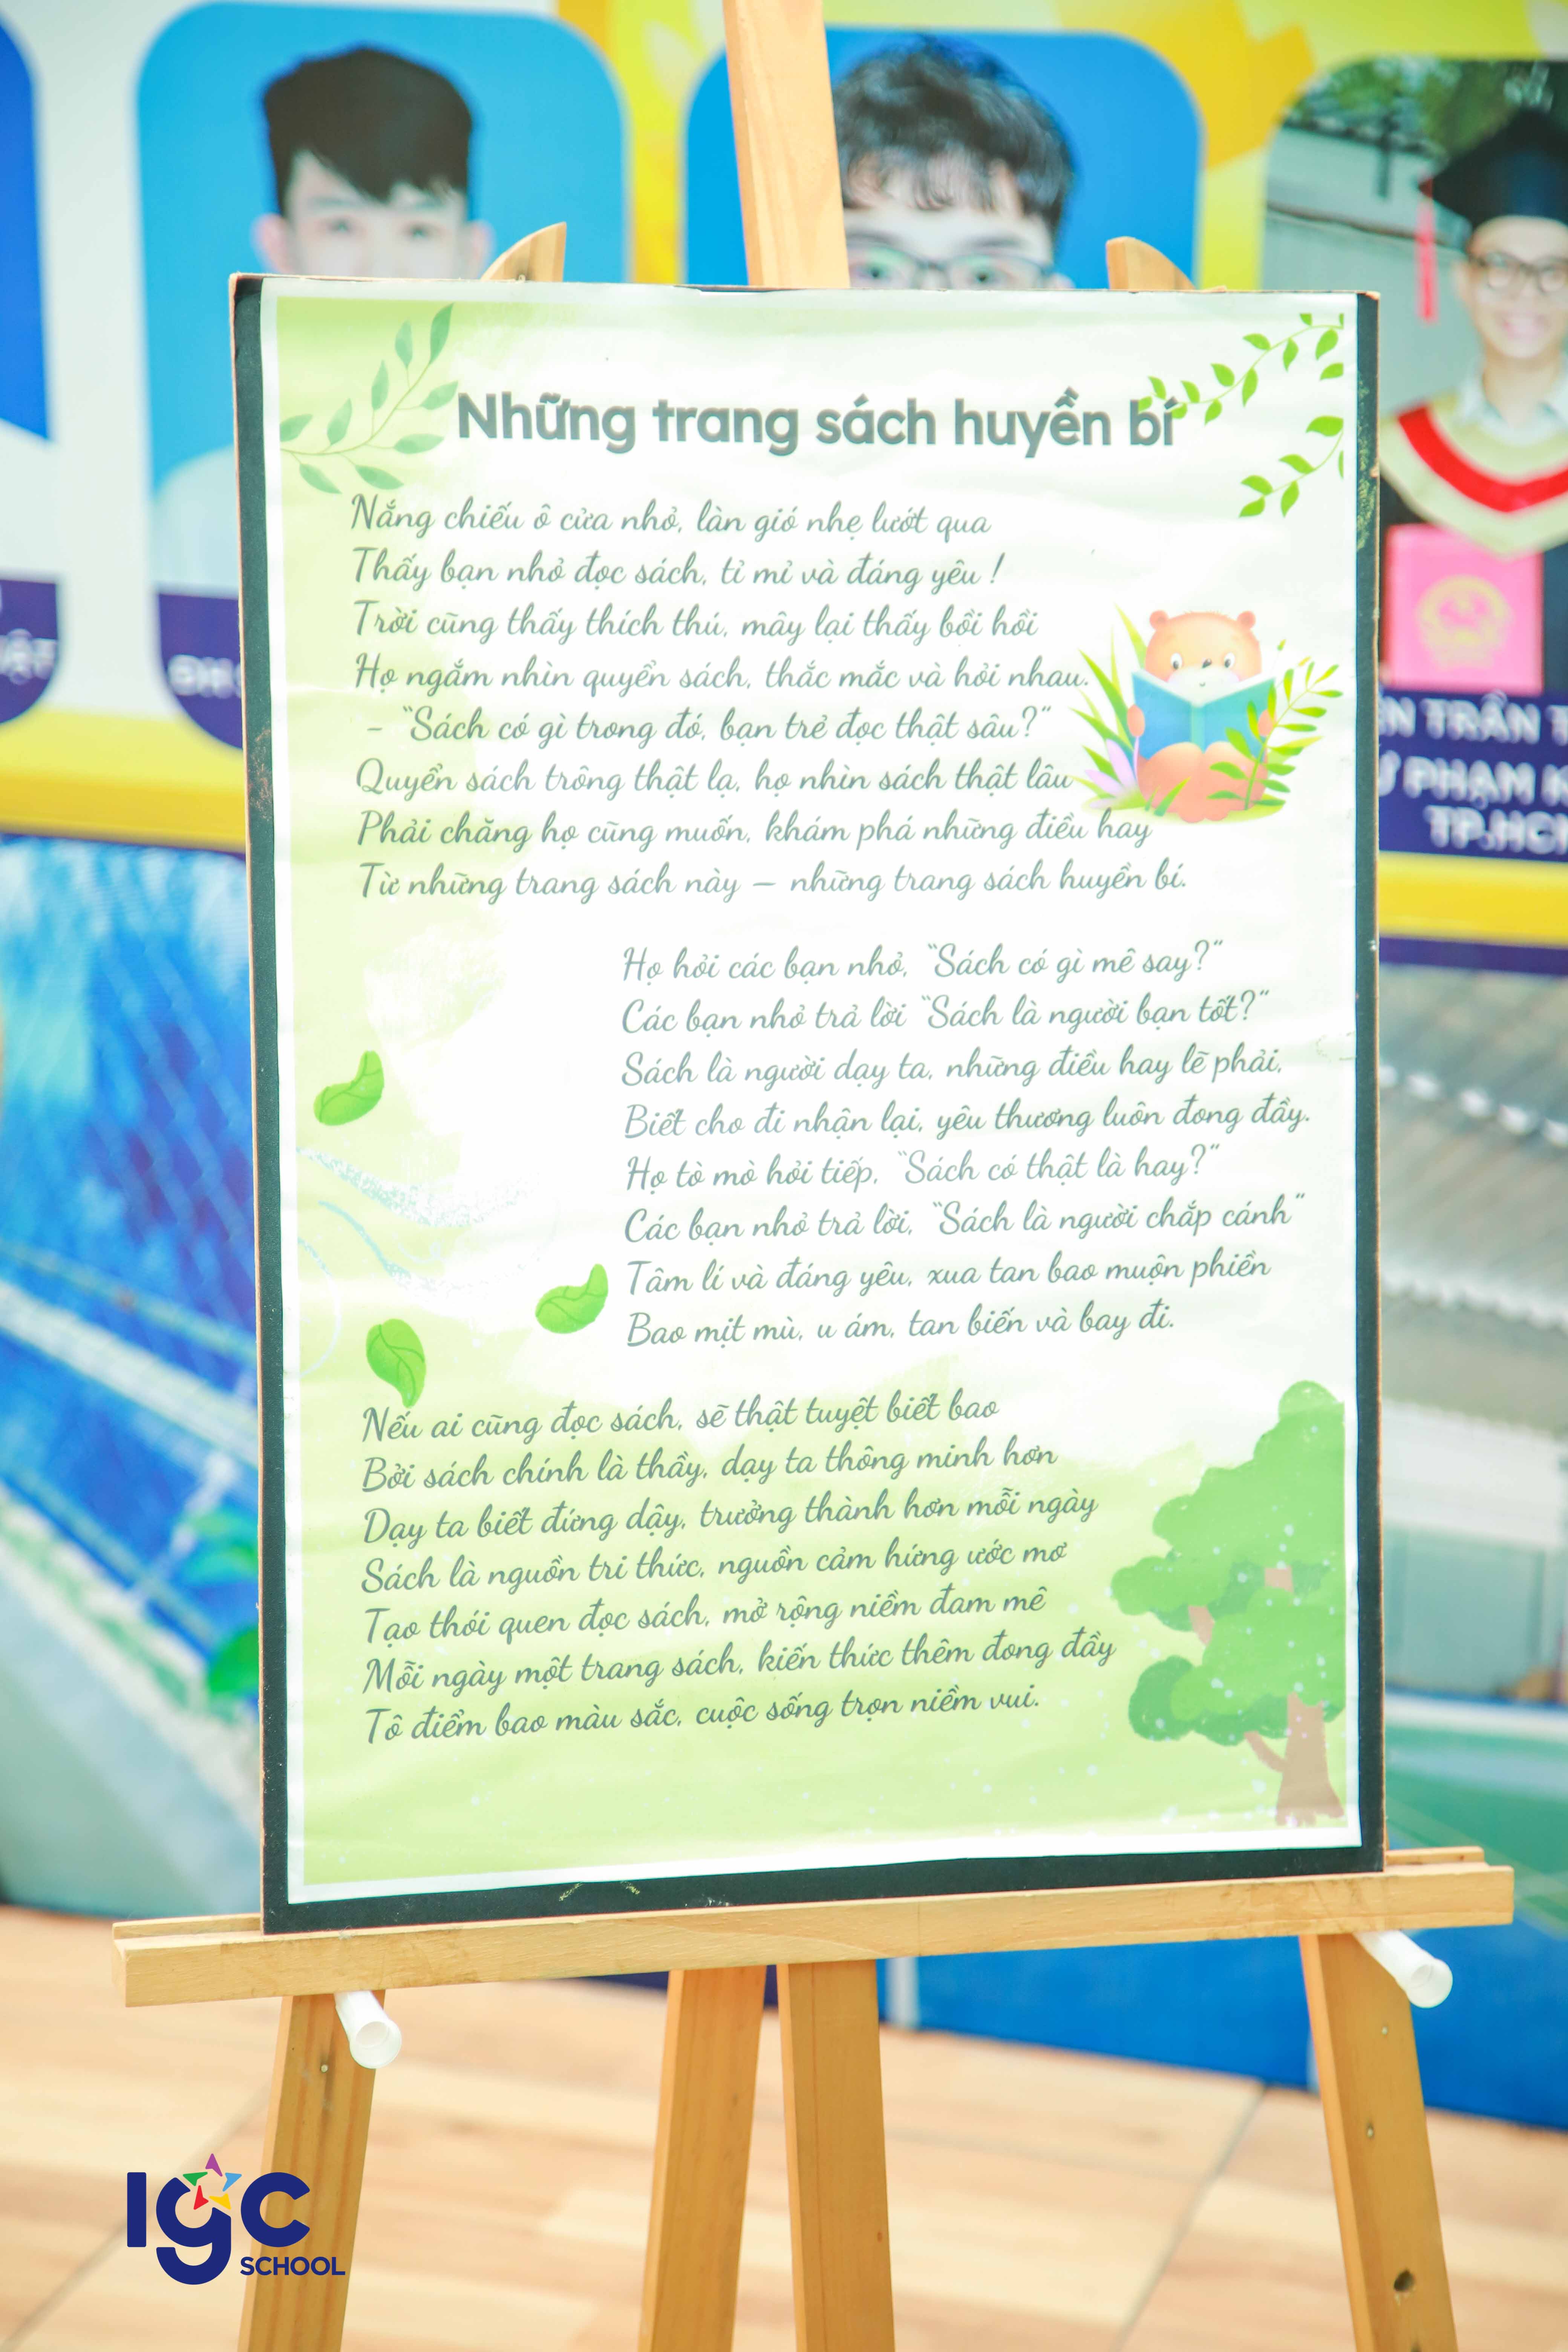 Những trang sách huyền bí
Nắng chiếu ô cửa nhỏ, làn gió nhẹ lướt qua
Thấy bạn nhỏ đọc sách, tỉ mỉ và đáng yêu !
Trời cũng thấy thích thú, mây lại thấy bồi hồi
Họ ngắm nhìn quyển sách, thắc mắc và hỏi nhau.
- "Sách có gì trong đó, bạn trẻ đọc thật sâu?"
Quyển sách trông thật lạ, họ nhìn sách thật lâu
Phải chăng họ cũng muốn, khám phá những điều hay
Từ những trang sách này – những trang sách huyền bí.
Họ hỏi các bạn nhỏ, "Sách có gì mê say?"
Các bạn nhỏ trả lời "Sách là người bạn tốt?"
Sách là người dạy ta, những điều hay lẽ phải,
Biết cho đi nhận lại, yêu thương luôn đong đầy.
Họ tò mò hỏi tiếp, "Sách có thật là hay?"
Các bạn nhỏ trả lời, "Sách là người chắp cánh"
Tâm lí và đáng yêu, xua tan bao muộn phiền
Bao mịt mù, u ám, tan biến và bay đi.
Nếu ai cũng đọc sách, sẽ thật tuyệt biết bao
Bởi sách chính là thầy, dạy ta thông minh hơn
Dạy ta biết đứng dậy, trưởng thành hơn mỗi ngày
Sách là nguồn tri thức, nguồn cảm hứng ước mơ
Tạo thói quen đọc sách, mở rộng niềm đam mê
Mỗi ngày một trang sách, kiến thức thêm đong đầy
Tô điểm bao màu sắc, cuộc sống trọn niềm vui.
TRẦN
PHẠM
TP.HCM
IGC
SCHOOL